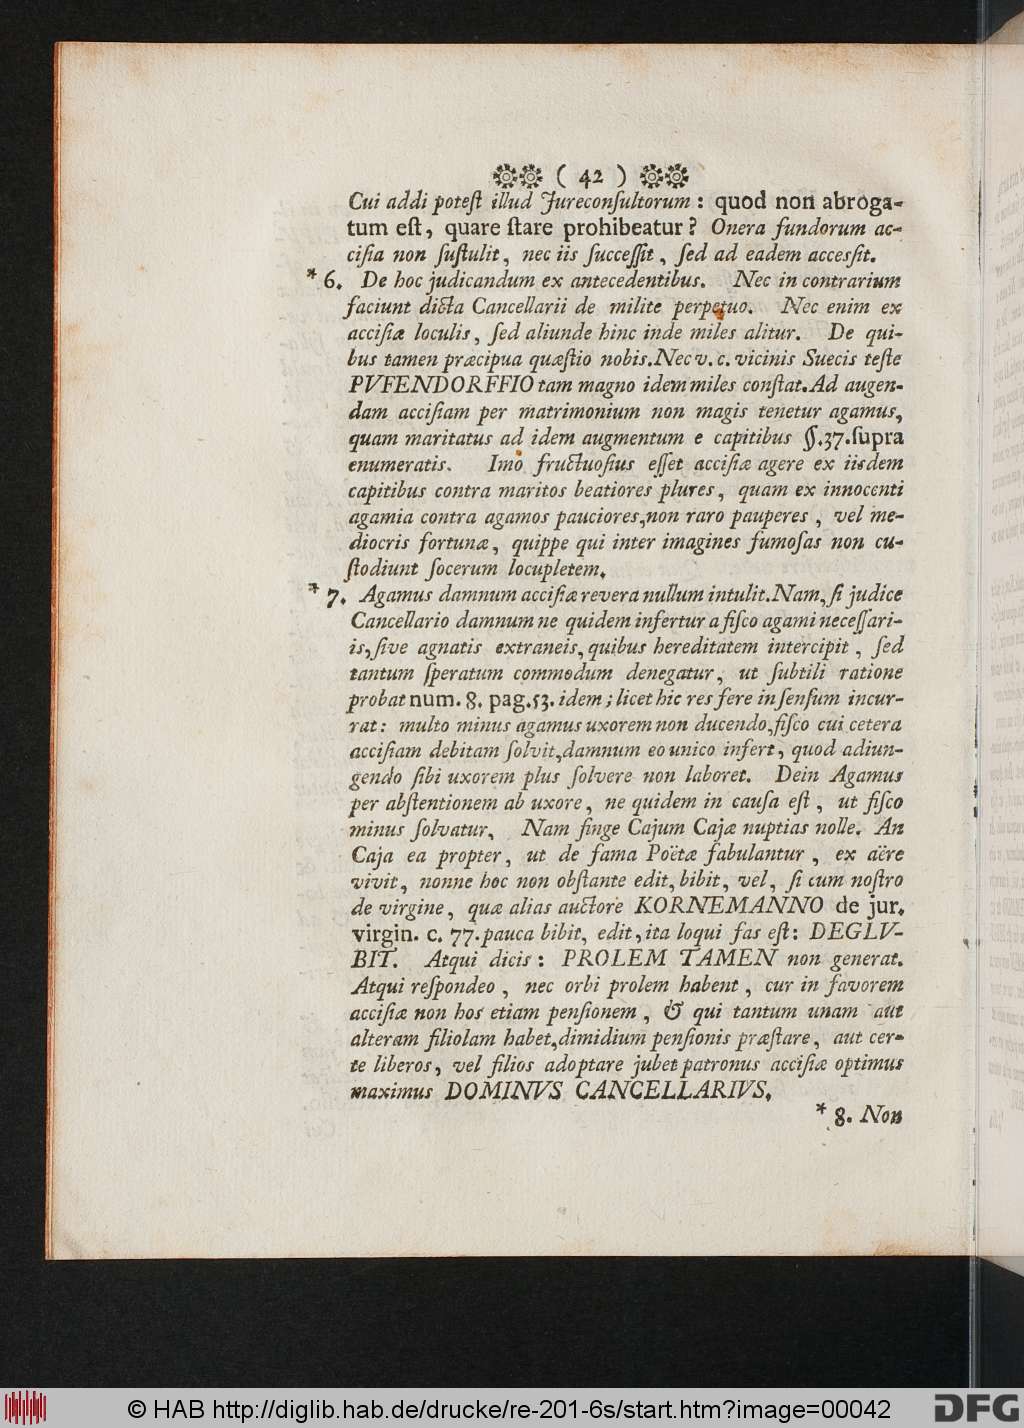 ( 42 )
Cui addi poteſt illud Jureconſultorum : quod non abroga-
tum eſt, quare ſtare prohibeatur? Onera fundorum ac-
ciſia non ſuſtulit, nec iis ſucceſſit, ſed ad eadem accesſit.
* 6. De hoc judicandum ex antecedentibus. Nec in contrarium
faciunt dicta Cancellarii de milite perpetuo. Nec enim ex
acciſiæ loculis, ſed aliunde hinc inde miles alitur. De qui-
bus tamen præcipua quæſtio nobis. Nec v. c. vicinis Suecis teſte
PVFENDORFFIO tam magno idem miles conſtat. Ad augen-
dam acciſiam per matrimonium non magis tenetur agamus,
quam maritatus ad idem augmentum e capitibus §. 37. ſupra
enumeratis. Imò fructuoſius eſſet acciſiæ agere ex iisdem
capitibus contra maritos beatiores plures, quam ex innocenti
agamia contra agamos pauciores, non raro pauperes, vel me-
diocris fortunæ, quippe qui inter imagines fumoſas non cu-
ſtodiunt ſocerum locupletem.
* 7. Agamus damnum acciſiæ revera nullum intulit. Nam, ſi judice
Cancellario damnum ne quidem infertur a fiſco agami neceſſari-
is, ſive agnatis extraneis, quibus hereditatem intercipit, ſed
tantum ſperatum commodum denegatur, ut ſubtili ratione
probat num. 8. pag. 53. idem; licet hic res fere in ſenſum incur-
rat: multo minus agamus uxorem non ducendo, fiſco cui cetera
acciſiam debitam ſolvit, damnum eo unico infert, quod adiun-
gendo ſibi uxorem plus ſolvere non laboret. Dein Agamus
per abſtentionem ab uxore, ne quidem in cauſa eſt, ut fiſco
minus ſolvatur. Nam finge Cajum Cajæ nuptias nolle. An
Caja ea propter, ut de fama Poëtæ fabulantur, ex aëre
vivit, nonne hoc non obſtante edit, bibit, vel, ſi cum noſtro
de virgine, quæ alias auctore KORNEMANNO de jur.
virgin. c. 77. pauca bibit, edit, ita loqui fas eſt: DEGLV-
BIT. Atqui dicis: PROLEM TAMEN non generat.
Atqui reſpondeo, nec orbi prolem habent, cur in favorem
acciſiæ non hos etiam penſionem, & qui tantum unam aut
alteram filiolam habet, dimidium penſionis præſtare, aut cer-
te liberos, vel filios adoptare jubet patronus acciſiæ optimus
maximus DOMINVS CANCELLARIVS.
* 8. Non
© HAB http://diglib.hab.de/drucke/re-201-6s/start.htm?image=00042
DFG